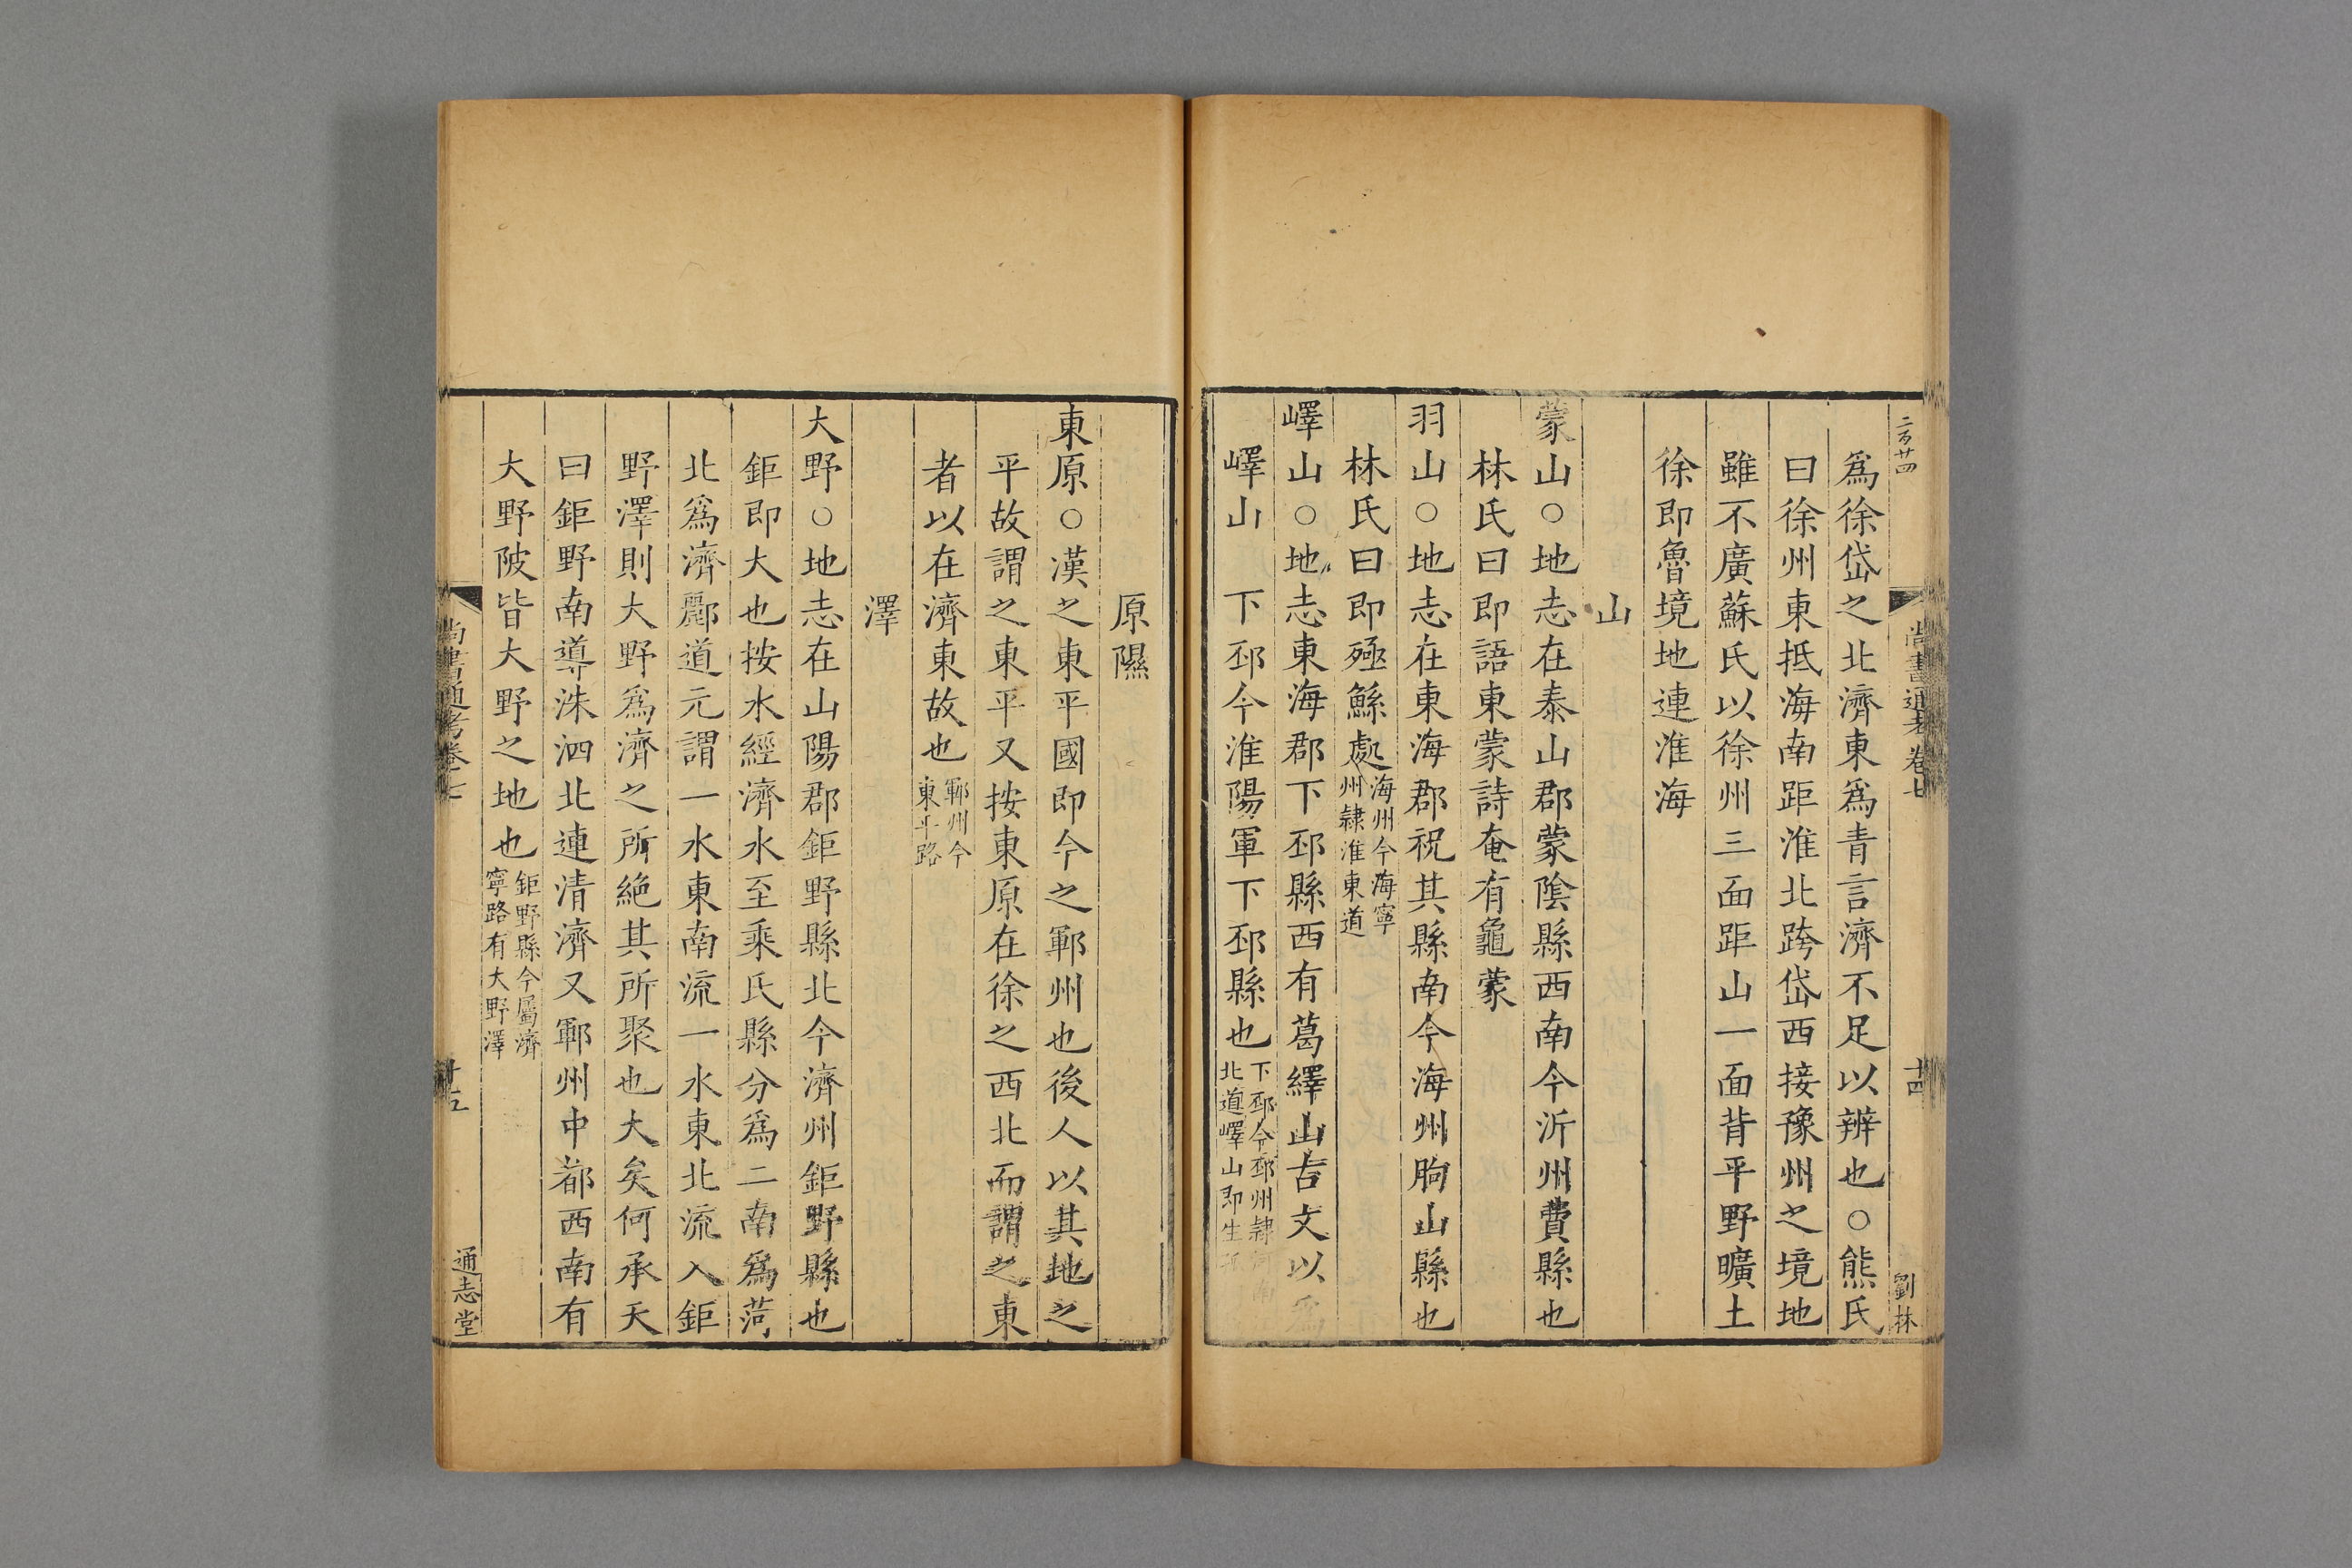 二百廿四
尚書通考卷七
十四
劉林
爲徐岱之北濟東爲青言濟不足以辨也○熊氏
曰徐州東抵海南距淮北跨岱西接豫州之境地
雖不廣蘇氏以徐州三面距山一面背平野曠土
徐即魯境地連淮海
山
蒙山○地志在泰山郡蒙陰縣西南今沂州費縣也
林氏曰即語東蒙詩奄有龜蒙
羽山○地志在東海郡祝其縣南今海州朐山縣也
林氏曰即殛鯀處海州今海寧
州隸淮東道
嶧山○地志東海郡下邳縣西有葛繹山古文以爲
嶧山下邳今淮陽軍下邳縣也下邳今邳州隸河南
北道嶧山即生
原隰
東原○漢之東平國即今之鄆州也後人以其地之
平故謂之東平又按東原在徐之西北而謂之東
者以在濟東故也鄆州今
東平路
澤
大野○地志在山陽郡鉅野縣北今濟州鉅野縣也
鉅即大也按水經濟水至乘氏縣分爲二南爲菏
北爲濟酈道元謂一水東南流一水東北流入鉅
野澤則大野爲濟之所絶其所聚也大矣何承天
曰鉅野南導洙泗北連清濟又鄆州中都西南有
大野陂皆大野之地也鉅野縣今屬濟
寧路有大野澤
尚書通考卷七
十五
通志堂